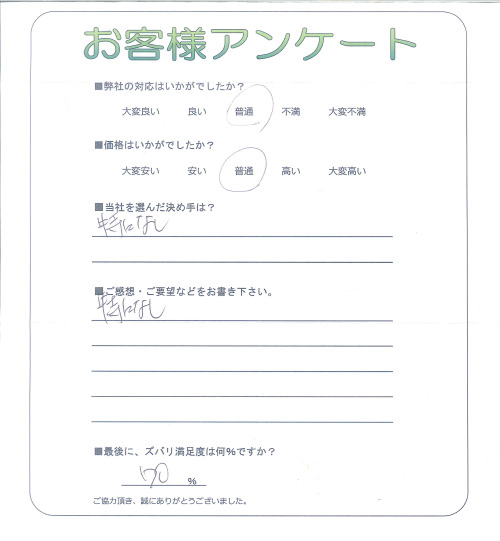 お客様アンケート
■弊社の対応はいかがでしたか？
大変良い 良い 普通 不満 大変不満
■価格はいかがでしたか？
大変安い 安い 普通 高い 大変高い
■当社を選んだ決め手は？
特になし
■ご感想・ご要望などをお書き下さい。
特になし
■最後に、ズバリ満足度は何%ですか？
70 %
ご協力頂き、誠にありがとうございました。